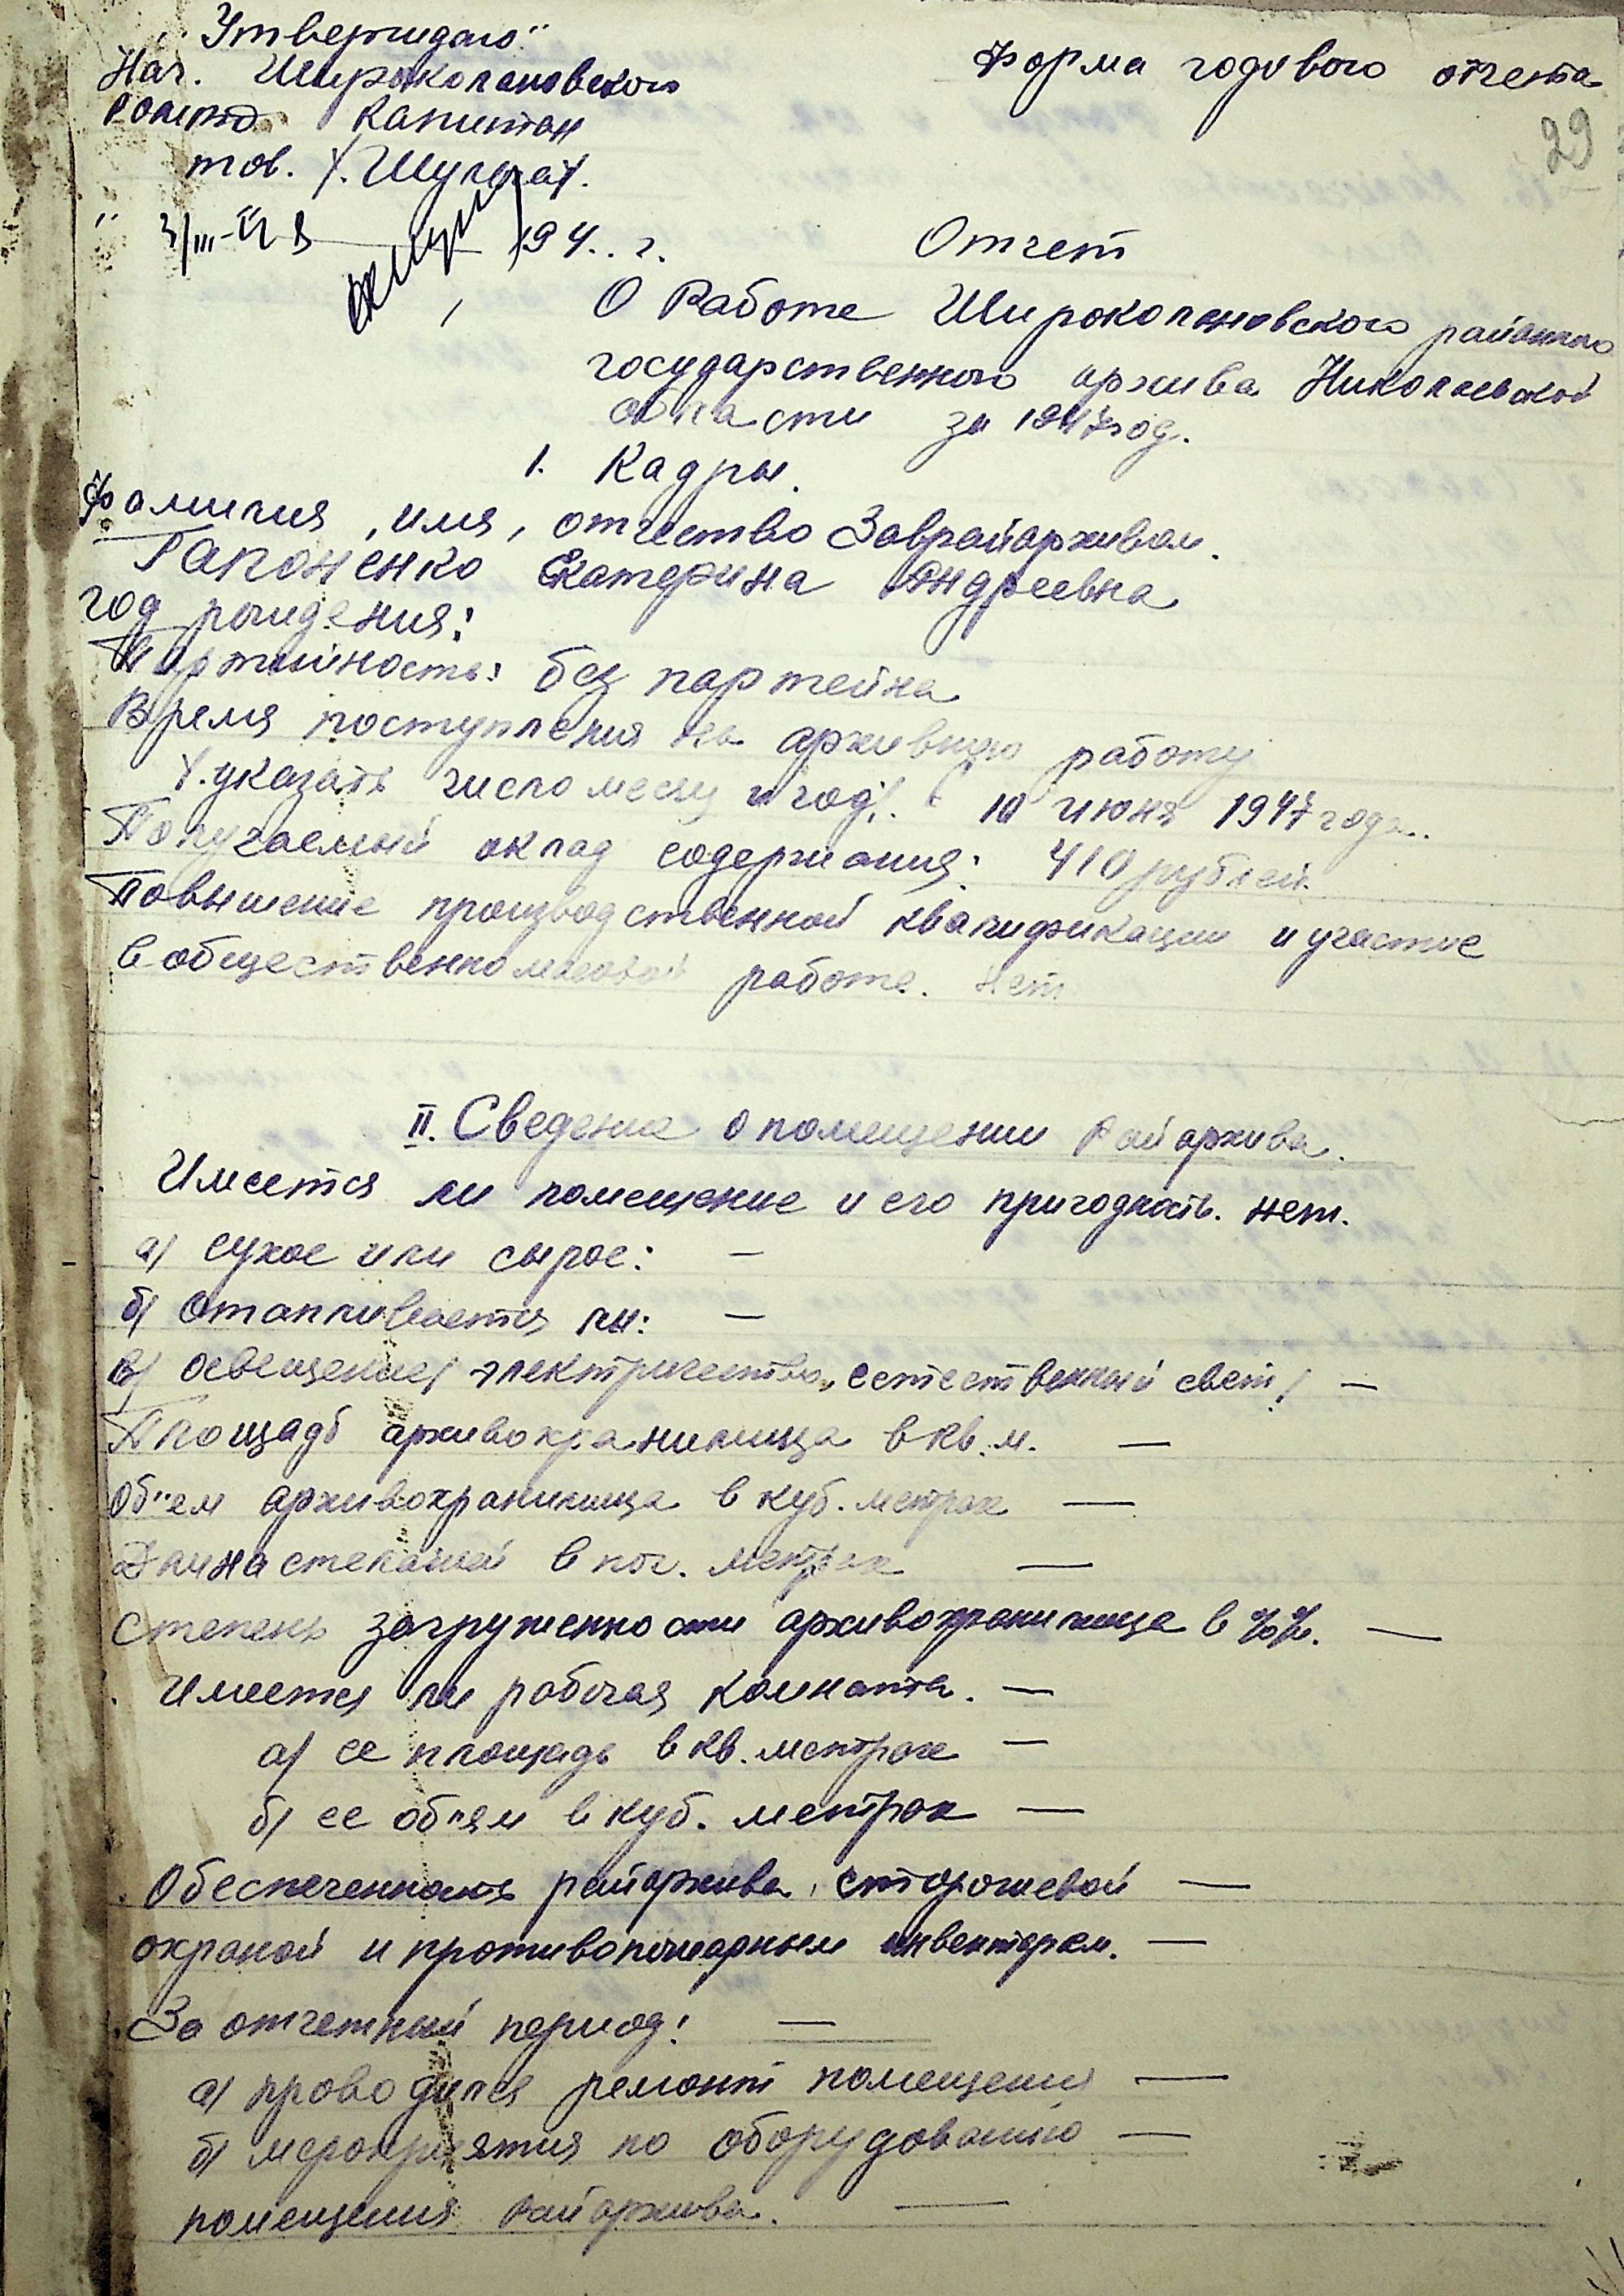 „Утверждаю"
Нач. Широколановского
капитан
тов. /. Шульга/.
Форма годового отчета
29
" 3/III-48 194.. г.
Отчет
О Работе Широколановского районного
государственного архива Николаевской
области за 1947 год.
1. Кадры.
Фамилия, имя, отчество Заврайархивом.
Гапоненко Екатерина Андреевна
год рождения:
Партийность: без партейна
Время поступления на архивную работу
/.указать число месяц и год/. 10 июня 1947 года.
Получаемый оклад содержания: 410 рублей.
Повышение производственной квалификации и участие
в общественно массовой работе. нет
II. Сведение о помещении Райархива.
Имеется ли помещение и его пригодность. нет.
а/ сухое или сырое: —
б/ Отапливается ли: —
в/ освещение/ электричество, естественный свет/ —
Площадь архивохранилища в кв. м. —
Об"ем архивохранилища в куб. метрах —
Длина стелажей в пог. метрах —
Степень загруженности архивохранилища в %%. —
Имеется ли рабочая комната. —
а/ ее площадь в кв. метрах —
б/ ее об"ям в куб. метрах —
Обеспеченность райархива, сторожевой —
охраной и противопожарным инвентарем. —
За отчетный период: —
а/ проводился ремонт помещения —
б/ мероприятия по оборудованию —
помещения Райархива. —